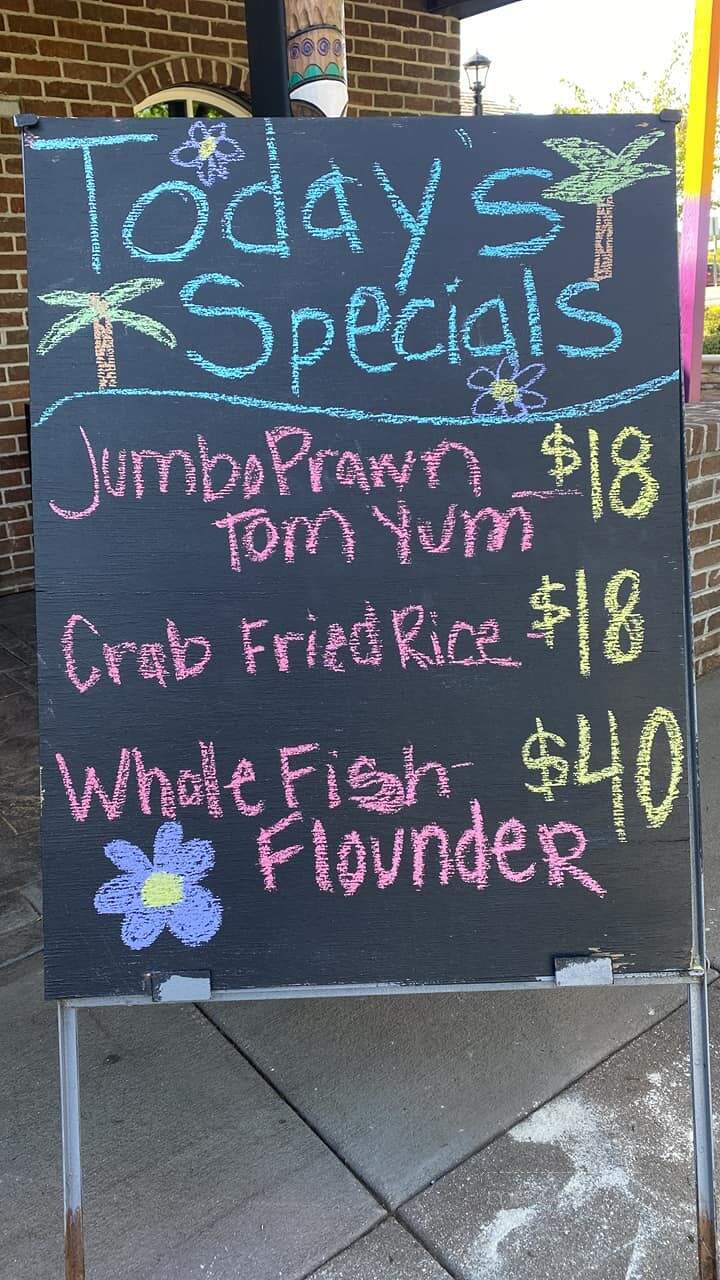 Today's
Specials
Jumbo Prawn $18
Tom Yum
Crab Fried Rice $18
Whole Fish- $40
FloundeR